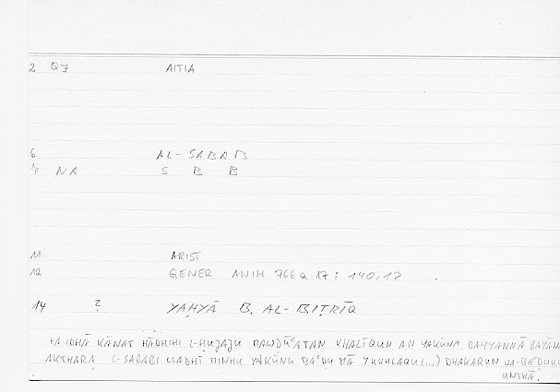 2 Q7 AITIA
6 AL-SABAB
NA S B B
11 ARIST
12 GENER ANIM 766a 17; 140,12
14 ? YAḤYĀ B. AL-BIṬRĪQ
FA-IDHĀ KĀNAT HĀDHIHI L-ḤUJAJU MAWḌŪʿATAN KHALĪQUN AN YAKŪNA BAYYANNĀ BAYĀNA
AKTHARA L-SABABI LLADHĪ MINHU YAKŪNU BAʿḌU MĀ YUKHLAQU (...) DHAKARUN WA-BAʿḌUHU
UNTHĀ.